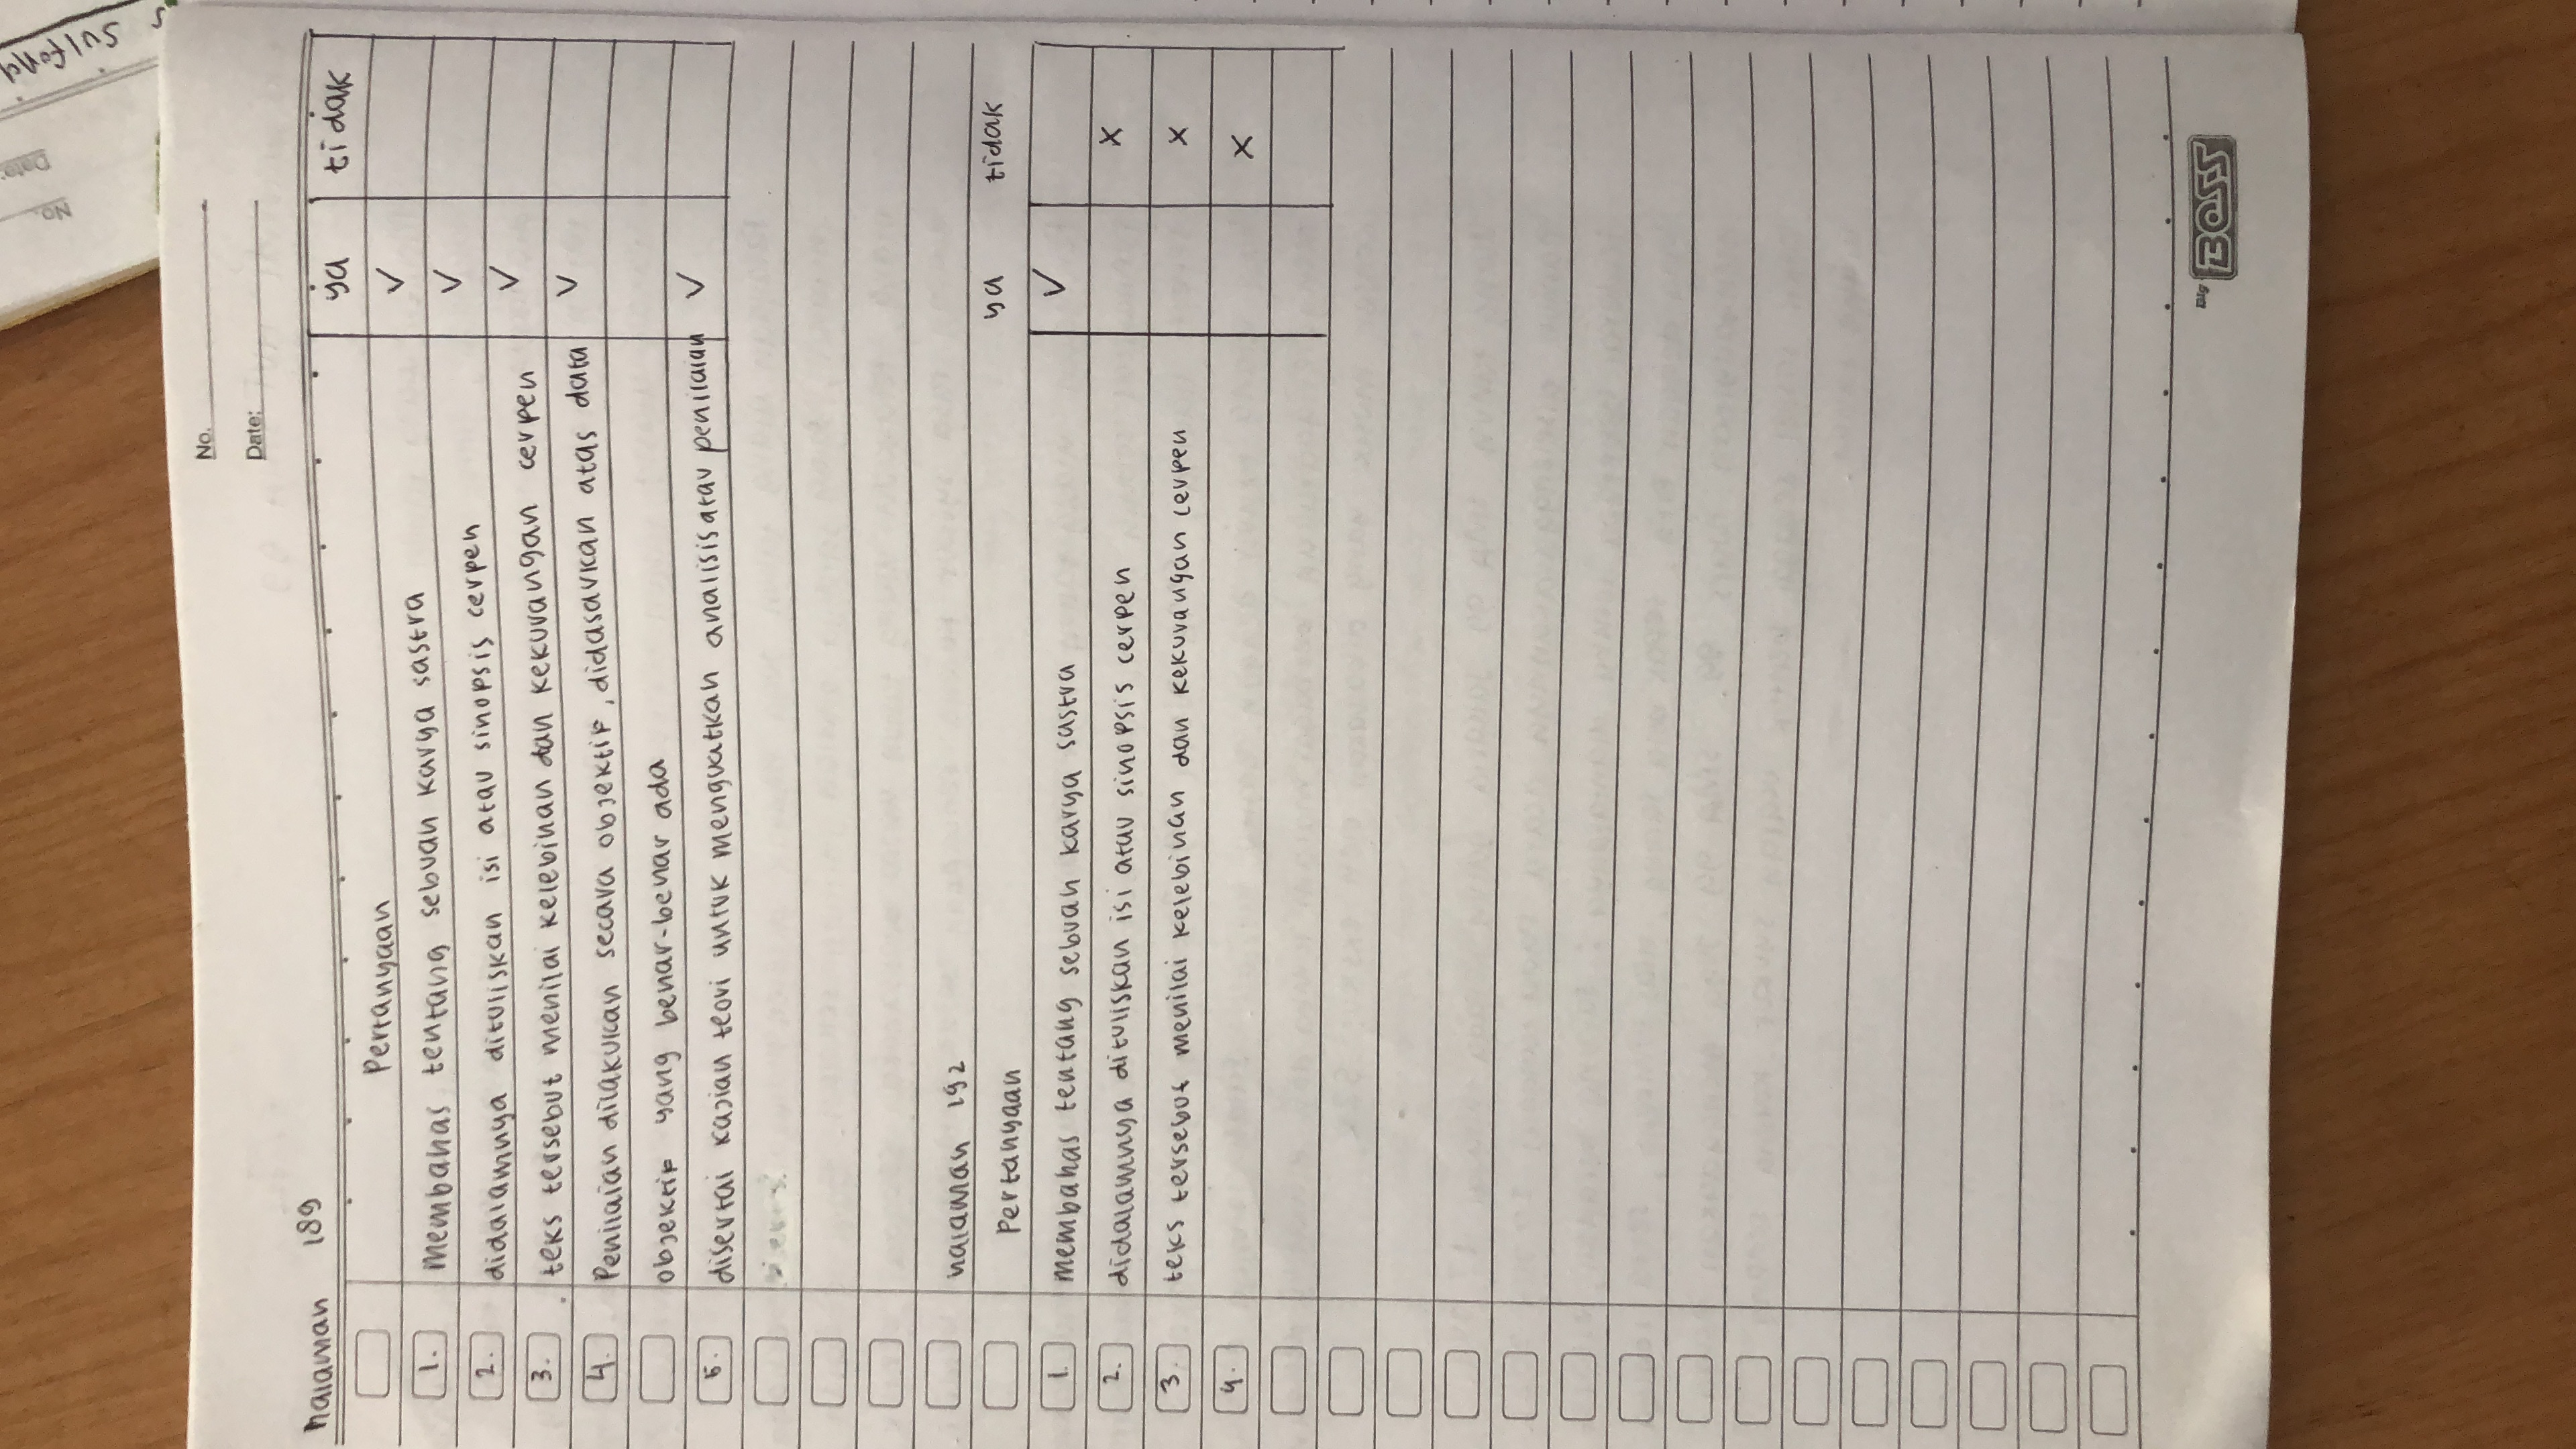 No.
Date:
halaman 189
Pertanyaan ya tidak
1. membahas tentang sebuah karya sastra ✓
2. didalamnya dituliskan isi atau sinopsis cerpen ✓
3. teks tersebut menilai kelebihan dan kekurangan cerpen ✓
4. Penilaian dilakukan secara objektif, didasarkan atas data ✓
objektif yang benar-benar ada
5. disertai kajian teori untuk menguatkan analisis atau penilaian ✓
halaman 192
Pertanyaan ya tidak
1. membahas tentang sebuah karya sastra ✓
2. didalamnya dituliskan isi atau sinopsis cerpen x
3. teks tersebut menilai kelebihan dan kekurangan cerpen x
4. x
Big BOSS
No.
Date: